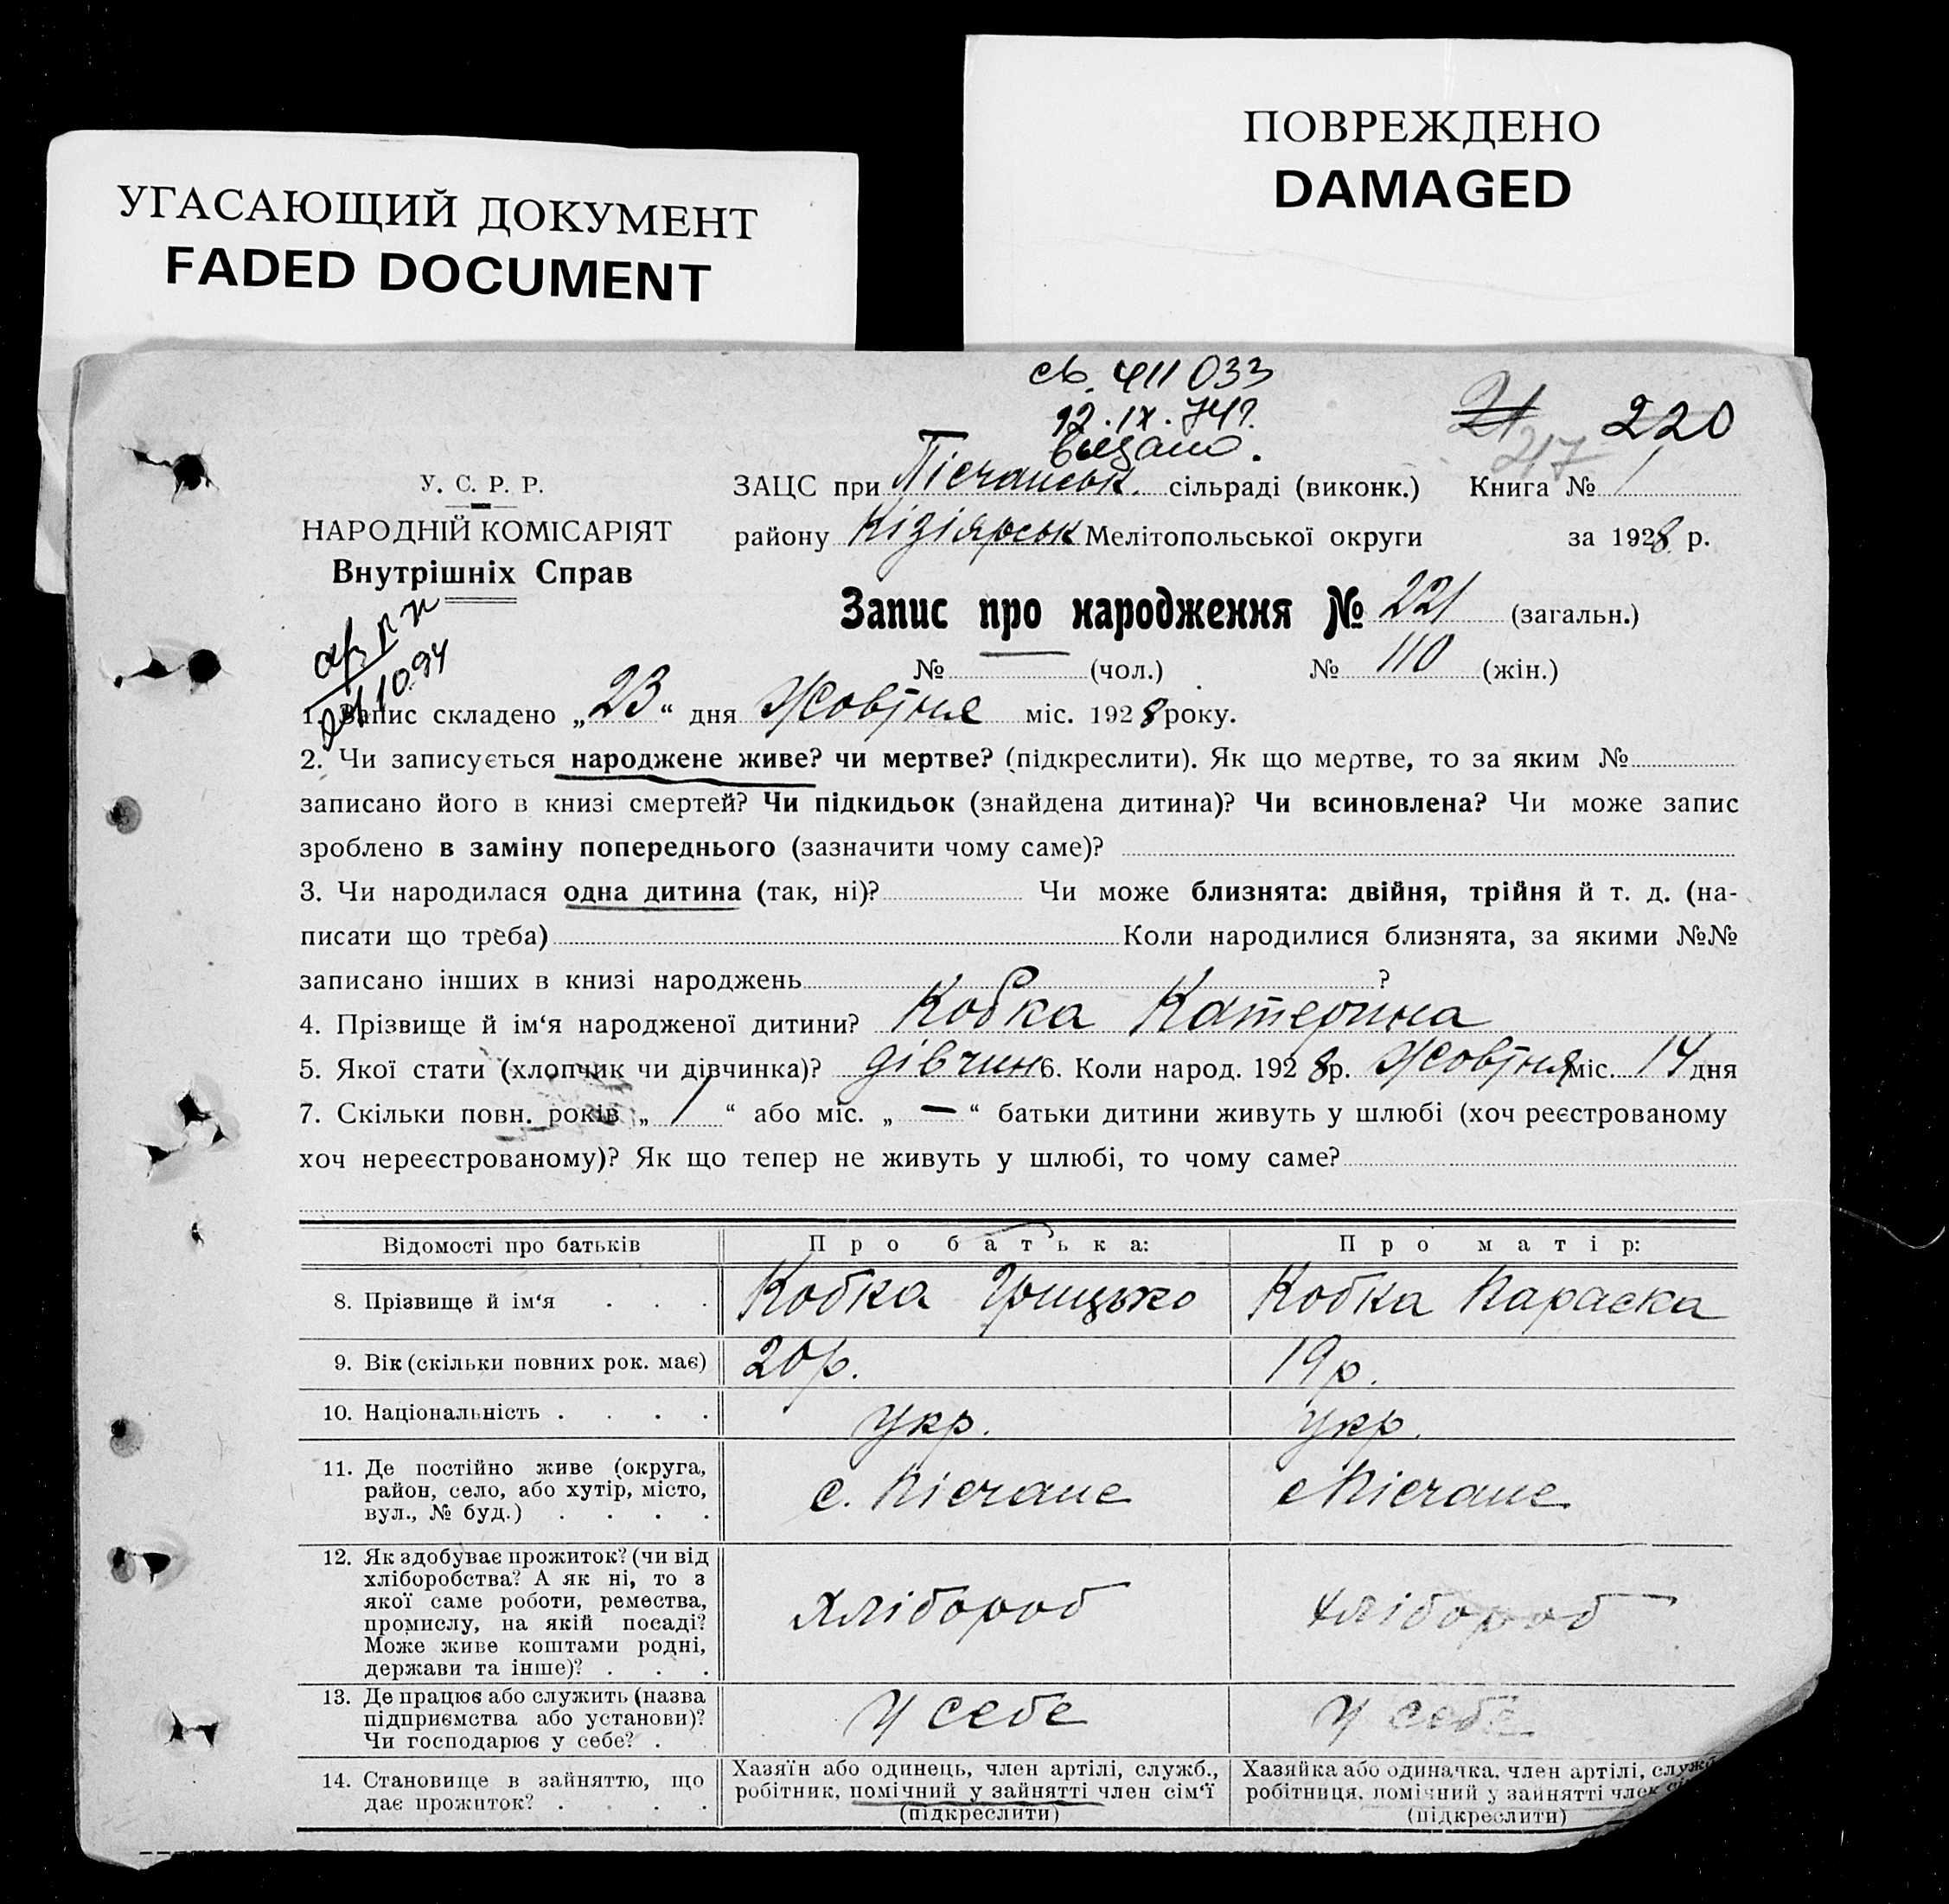 ПОВРЕЖДЕНО
DAMAGED
УГАСАЮЩИЙ ДОКУМЕНТ
FADED DOCUMENT
св. 411033
12.IX.74г.
видано.
21 220
217
У. С. Р. Р.
НАРОДНІЙ КОМІСАРІЯТ
Внутрішніх Справ
ЗАЦС при Пісчанськ. сільраді (виконк.) Книга № 1
району Кізіярськ Мелітопольської округи за 1928 р.
Запис про народження № 221 (загальн.)
№ (чол.) № 110 (жін.)
1094
1. Запис складено „23“ дня Жовтня міс. 1928 року.
2. Чи записується народжене живе? чи мертве? (підкреслити). Як що мертве, то за яким №
записано його в книзі смертей? Чи підкидьок (знайдена дитина)? Чи всиновлена? Чи може запис
зроблено в заміну попереднього (зазначити чому саме)?
3. Чи народилася одна дитина (так, ні)? Чи може близнята: двійня, трійня й т. д. (на-
писати що треба) Коли народилися близнята, за якими №№
записано інших в книзі народжень ?
4. Прізвище й ім‘я народженої дитини? Кобка Катерина
5. Якої стати (хлопчик чи дівчинка)? дівчин 6. Коли народ. 1928 р. Жовтня міс. 14 дня
7. Скільки повн. років „ 1 “ або міс. „ — “ батьки дитини живуть у шлюбі (хоч реєстрованому
хоч нереєстрованому)? Як що тепер не живуть у шлюбі, то чому саме?
Відомості про батьків Про батька: Про матір:
8. Прізвище й ім‘я . . . Кобка Грицько Кобка Параска
9. Вік (скільки повних рок. має) 20 р. 19 р.
10. Національність . . . . укр. укр.
11. Де постійно живе (округа,
район, село, або хутір, місто,
вул., № буд.) . . . .
с. Пісчане с Пісчане
12. Як здобуває прожиток? (чи від
хліборобства? А як ні, то з
якої саме роботи, ремества,
промислу, на якій посаді?
Може живе коштами родні,
держави та інше)? . . .
хлібороб хлібороб
13. Де працює або служить (назва
підприємства або установи)?
Чи господарює у себе? .
у себе у себе
14. Становище в зайняттю, що
дає прожиток? . . . .
Хазяїн або одинець, член артілі, служб.,
робітник, помічний у зайнятті член сім‘ї
(підкреслити)
Хазяйка або одиначка, член артілі, служб
робітниця, помічний у зайнятті член
(підкреслити)